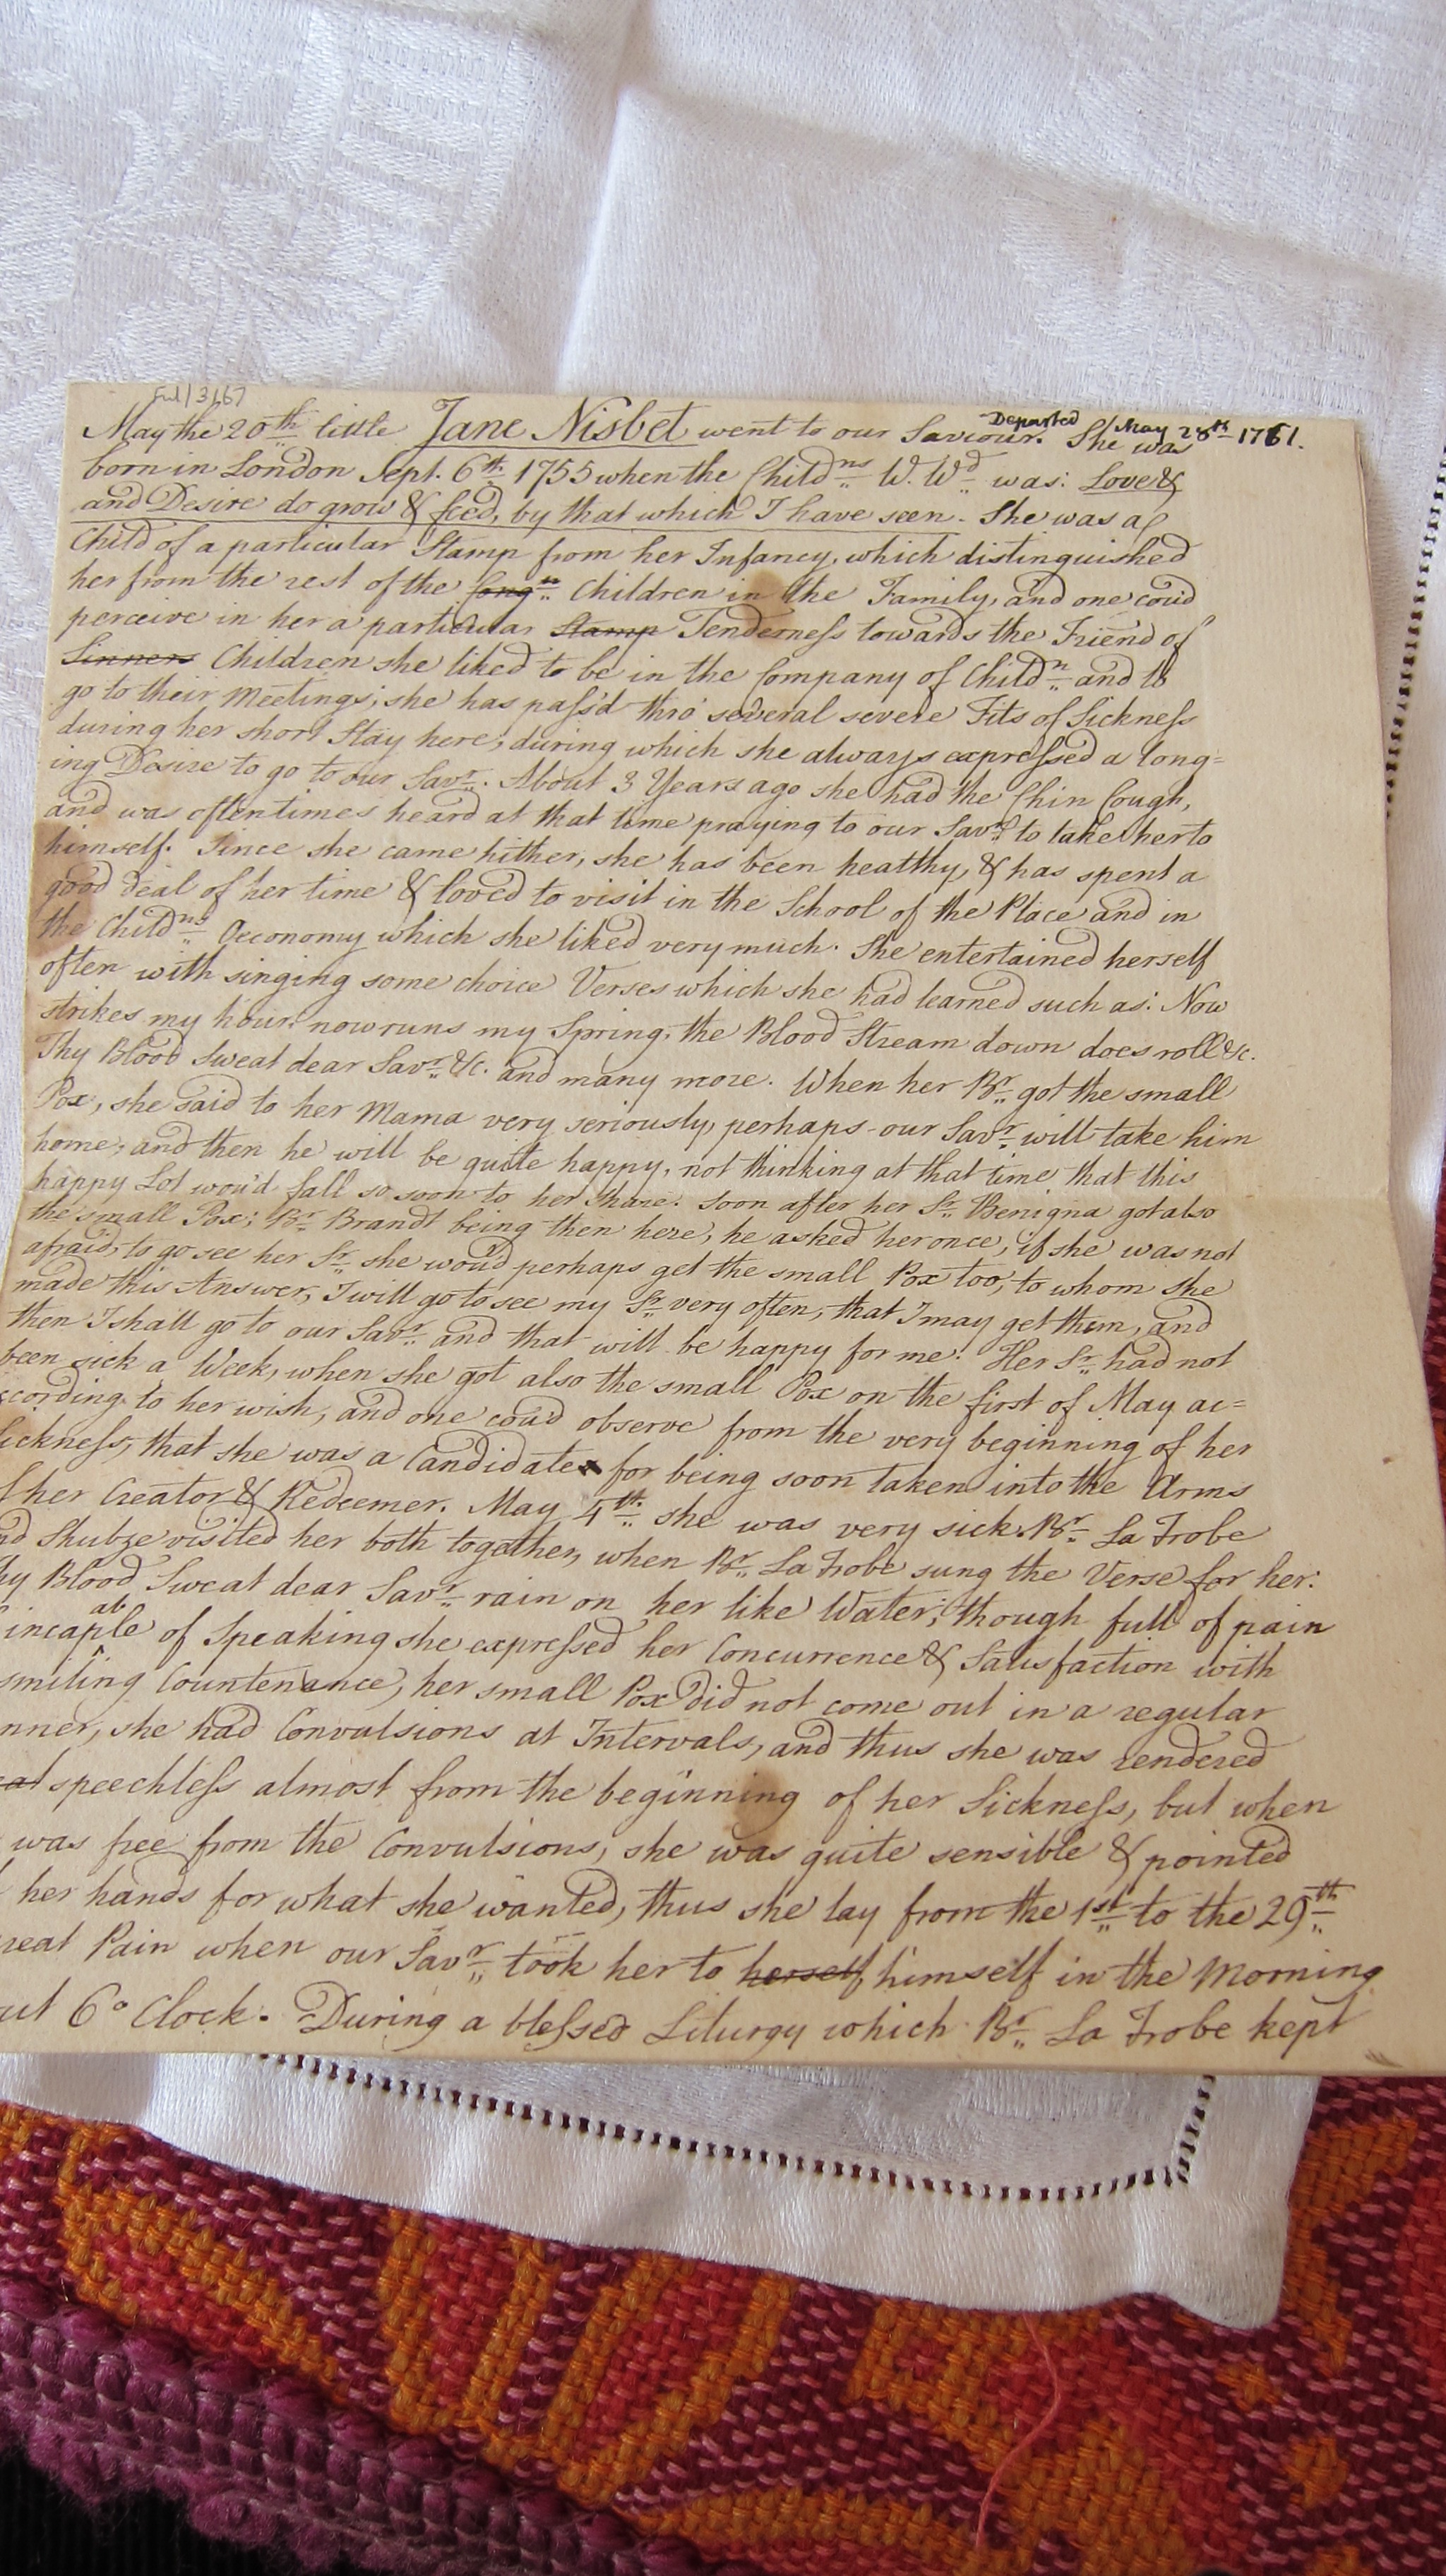 Ful/3167
Departed May 28th 1761.
May the 20th little Jane Nisbet went to our Saviour. She was
born in London Sept. 6th 1755 when the Childns W. Wd was: Love &
and Desire do grow & feed, by that which I have seen. She was a
Child of a particular Stamp from her Infancy, which distinguished
her from the rest of the Congn Children in the Family, and one cou'd
perceive in her a particular Stamp Tenderness towards the Friend of
Sinners Children she liked to be in the Company of Childn and to
go to their Meetings; she has pass'd thro' several severe Fits of Sickness
during her short Stay here; during which she always expressed a long=
ing Desire to go to our Savr. About 3 Years ago she had the Chin Cough,
and was oftentimes heard at that time praying to our Savr to take her to
himself. Since she came hither, she has been healthy, & has spent a
good deal of her time & loved to visit in the School of the Place and in
the Childns Oeconomy which she liked very much. She entertained herself
often with singing some choice Verses which she had learned such as: Now
strikes my hour, now runs my Spring, the Blood Stream down does roll &c.
Thy Blood Sweat dear Savr &c. and many more. When her Br got the small
Pox, she said to her Mama very seriously, perhaps our Savr will take him
home; and then he will be quite happy, not thinking at that time that this
happy Lot wou'd fall so soon to her Share. Soon after her Sr Benigna got also
the small Pox; Br Brandt being then here, he asked her once, if she was not
afraid, to go see her Sr she wou'd perhaps get the small Pox too, to whom she
made this Answer, I will go to see my Sr very often, that I may get them, and
then I shall go to our Savr and that will be happy for me. Her Sr had not
been sick a Week, when she got also the small Pox on the first of May ac=
cording to her wish, and one cou'd observe from the very beginning of her
Sickness, that she was a Candidate for being soon taken into the Arms
of her Creator & Redeemer. May 4th she was very sick. Br La Trobe
nd Shubze visited her both together, when Br La Trobe sung the Verse for her:
hy Blood Sweat dear Savr rain on her like Water; though full of pain
incapable of Speaking she expressed her Concurrence & Satisfaction with
smiling Countenance, her small Pox did not come out in a regular
nner, she had Convulsions at Intervals, and thus she was rendered
speechless almost from the beginning of her Sickness, but when
was free from the Convulsions, she was quite sensible & pointed
her hands for what she wanted, thus she lay from the 1st to the 29th
reat Pain when our Savr took her to herself, himself in the Morning
ut 6 o Clock. During a blessed Liturgy which Br La Trobe kept